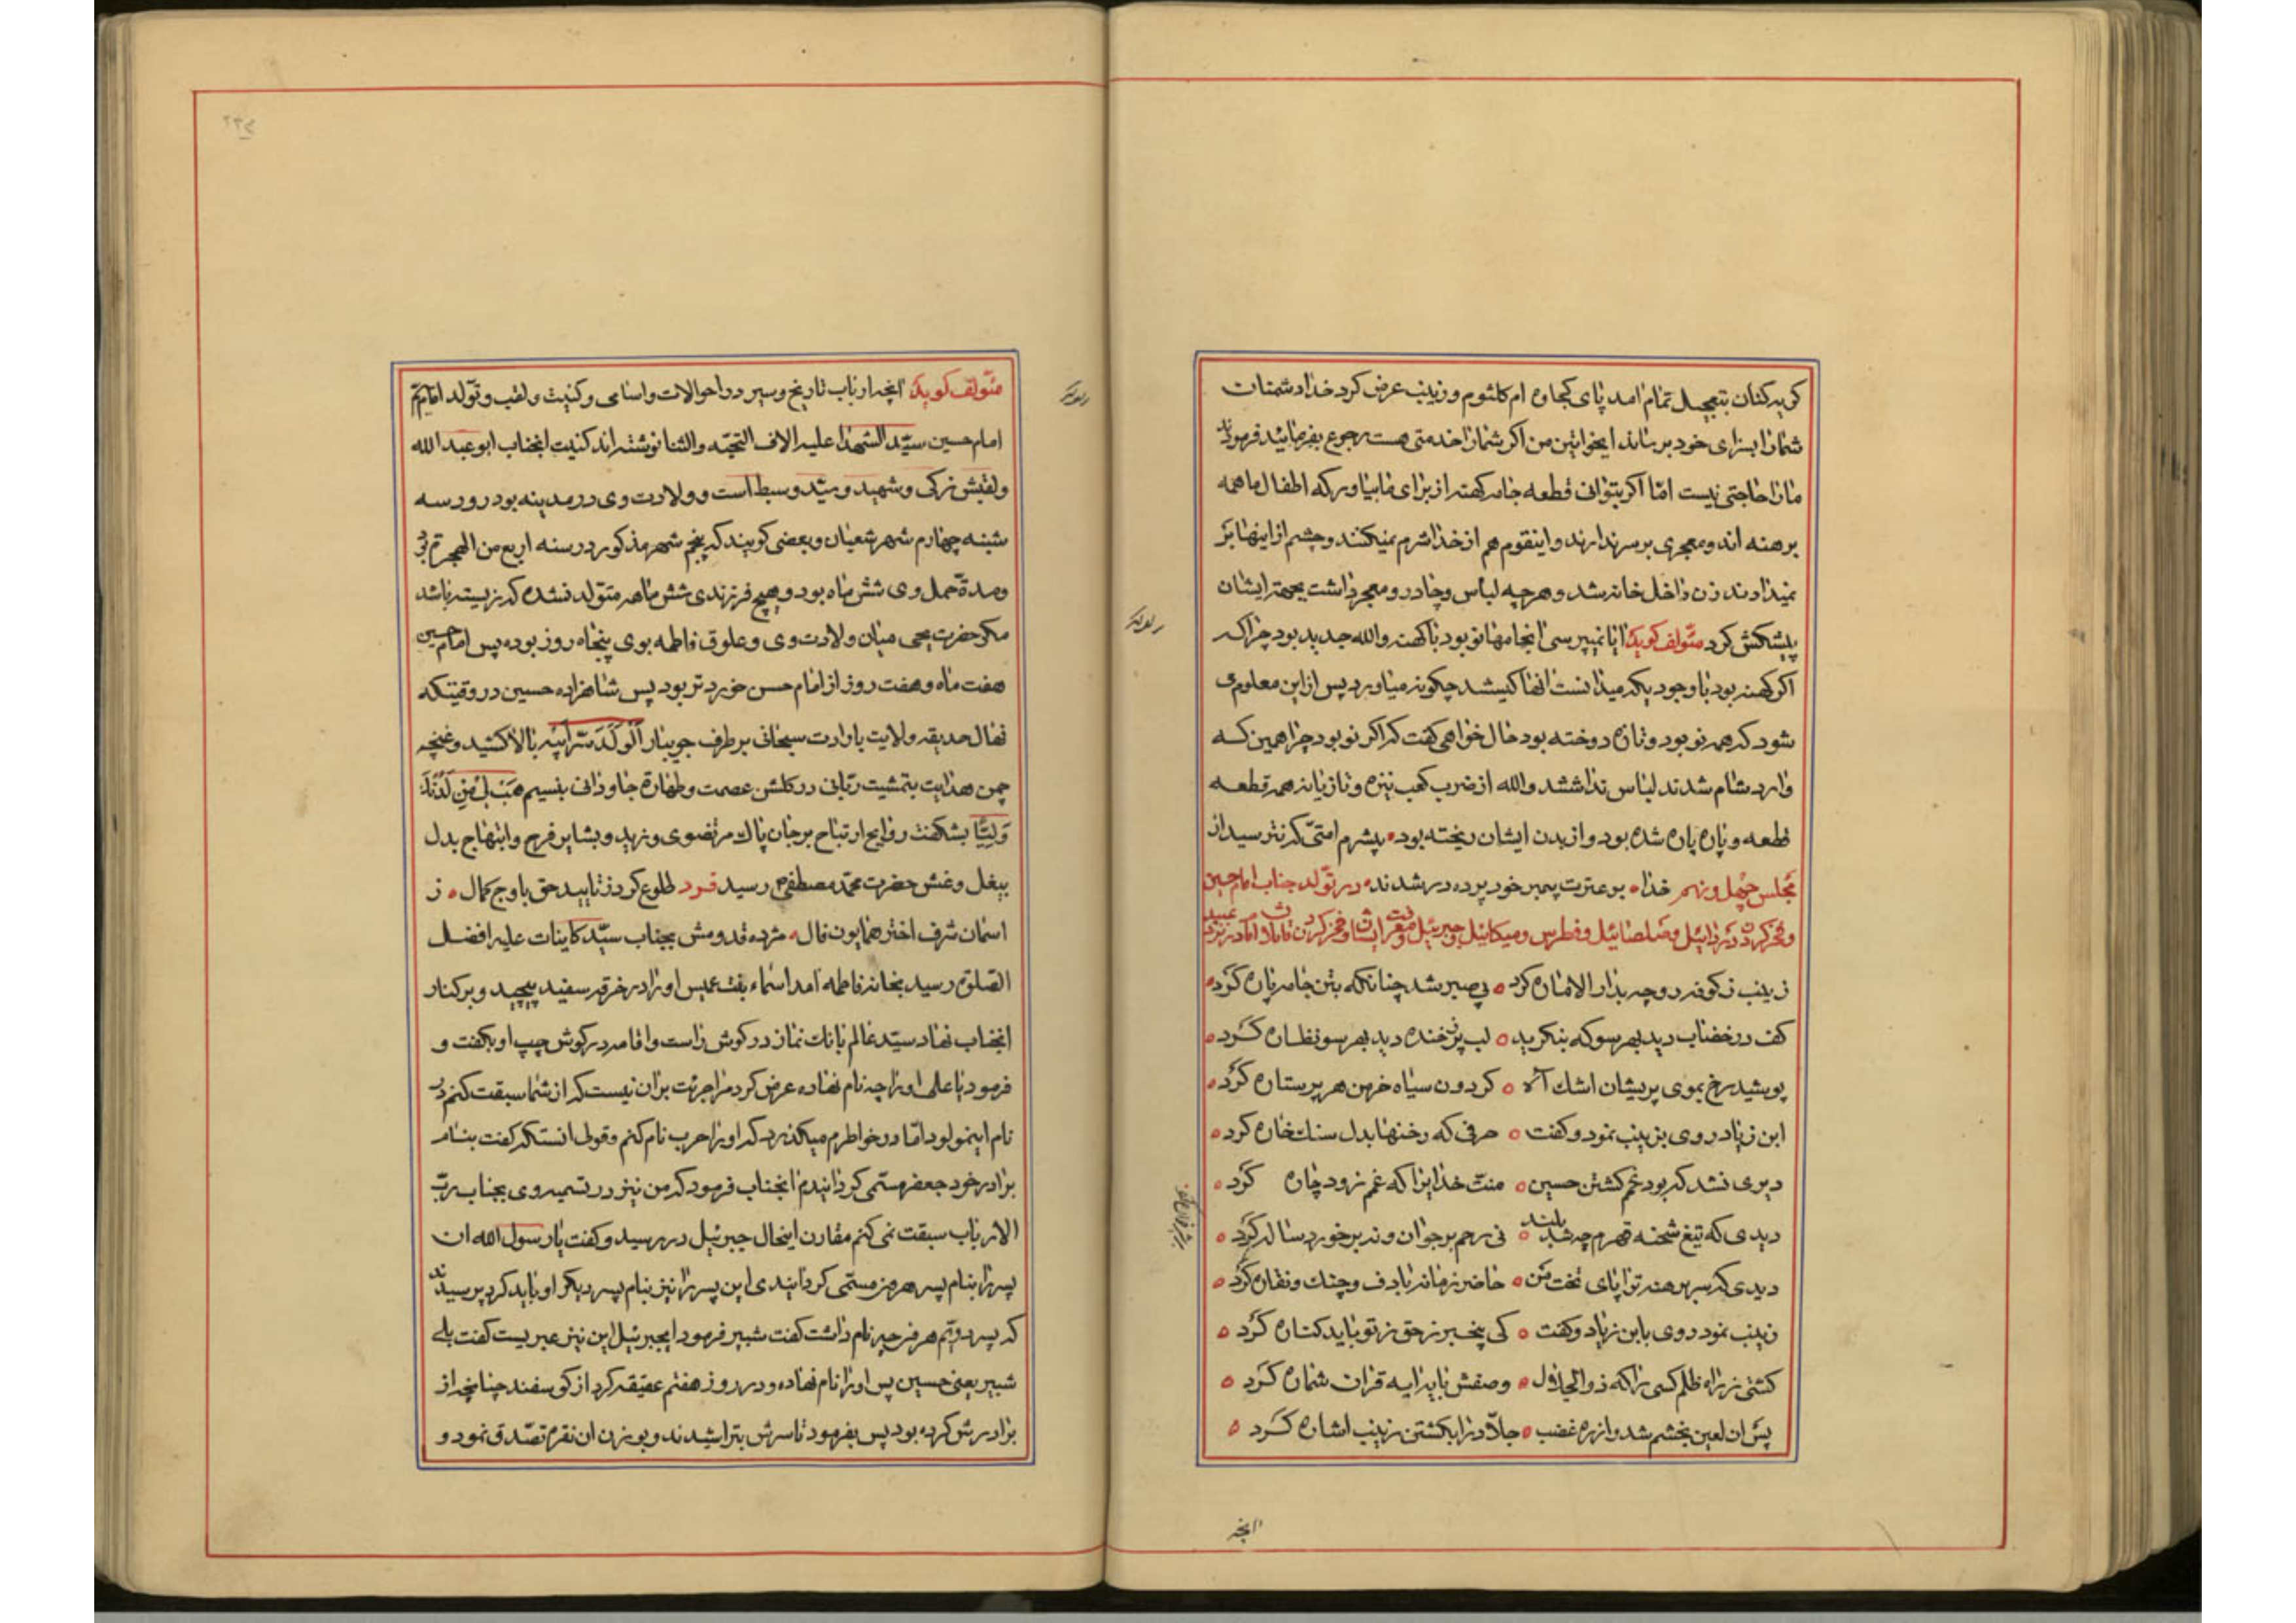 کریه کنان بتعجیل تمام امد پای کجاوه ام کلثوم و زینب عرض کرد خدا دشمنان
شما را بسزای خود برساند ایخواتین من اکر شما را خدمتی هست رجوع بفرمائید فرمودند
ما را حاجتی نیست امّا اکر بتوانی قطعه جامه کهنه از برای ما بیاور که اطفال ما همه
برهنه اند و معجری بر سر ندارند و اینقوم هم از خدا شرم نمیکنند و چشم از اینها بر
نمیدارند زن داخل خانه شد و هرچه لباس و چادر و معجر داشت بجهة ایشان
پیشکش کرد متولف کوید ایا نمیپرسی انجامها نو بود یا کهنه والله جدید بود چرا که
اکر کهنه بود با وجود یکه میدانست انها کیستند چکونه میاورد پس از این معلوم می
شود که همه نو بود و تازه دوخته بود حال خواهی کفت که اکر نو بود چرا همین که
وارد شام شدند لباس نداشتند والله از ضرب کعب نیزه و تازیانه همه قطعه
قطعه و پاره پاره شده بود و از بدن ایشان ریخته بود بیشرم امتی که نترسید از
مجلس چهل و نهم خدا بر عترت پیمبر خود پرده در شدند در تولد جناب امام حسین
و فخر کردن دردائیل و صلصائیل و فطرس و میکائیل و جبرئیل
زینب ز کوفه رو چه بدار الاماره کرد بی صبر شد چنانکه بتن جامه پاره کرد
کف در خضاب دید بهر سو که بنکرید لب پر ز خنده دید بهر سو نظاره کرد
پوشید رخ بموی پریشان اشک آه کردون سیاه خرمن هر پر ستاره کرد
ابن زیاد روی بزینب نمود و کفت حرفی که رخنها بدل سنک خاره کرد
دیری نشد که بود غم کشتن حسین منت خدایرا که غم زود چاره کرد
دیدی که تیغ شحنه قهرم چه شد بلند نی رحم بر جوان و نه بر خورد ساله کرد
دیدی که سر برهنه ترا پای تخت من حاضر زمانه با دف و چنک و نقاره کرد
زینب نمود روی بابن زیاد و کفت کی بیخبر ز حق ز تو باید کناره کرد
کشتی ز راه ظلم کسی را که ذوالجلال وصفش بایه ایه قران شماره کرد
پس ان لعین بخشم شد و از ره غضب جلاد را بکشتن زینب اشاره کرد
انچه
متولف کوید انچه ارباب تاریخ و سیر در احوالات و اسامی و کنیت و لقب و تولد امام
امام حسین سید الشهدا علیه الاف التحیه والثنا نوشته اند کنیت انجناب ابو عبد الله
و لقبش زکی و شهید و سید و سبط است و ولادت وی در مدینه بود روز سه
شنبه چهارم شهر شعبان و بعضی کویند که پنجم شهر مذکور در سنه اربع من الهجرة
و مدة حمل وی شش ماه بود و هیچ فرزندی شش ماهه متولد نشده که زیسته باشد
مکر حضرت یحیی میان ولادت وی و علوق فاطمه بوی پنجاه روز بوده پس امام حسین
هفت ماه و هفت روز از امام حسن خورد تر بود پس شاهزاده حسین در وقتیکه
نهال حدیقه ولایت باارادت سبحانی بر طرف جویبار اَلْوَلَدُ سِرُّ اَبیهِ بالا کشید و غنچه
چمن هدایت بتمشیت ربانی در کلشن عصمت و طهارة جاودانی بنسیم هَبْ لی مِن لَدُنْکَ
وَلِیّاً بشکفت روایح ارتیاح بر جان پاک مرتضوی وزید و بشایر فرح و ابتهاج بدل
بیغل و غش حضرت محمد مصطفی رسید فرد طلوع کرد ز تایید حق باوج کمال ز
اسمان شرف اختر همایون فال مژده قدومش بجناب سید کاینات علیه افضل
الصلوة رسید بخانه فاطمه امد اسماء بنت عمیس او را در خرقه سفید پیچید و بر کنار
انجناب نهاد سید عالم بانک نماز در کوش راست و اقامه در کوش چپ او بکفت و
فرمود یا علی او را چه نام نهاده عرض کرد مرا جرئت بران نیست که از شما سبقت کنم در
نام اینمولود اما در خواطرم میکذرد که او را حرب نام کنم و قولی انستکه کفت بنام
برادر خود جعفر مسمی کردانیدم انجناب فرمود که من نیز در تسمیه وی بجناب رب
الارباب سبقت نمی کنم مقارن اینحال جبرئیل در رسید و کفت یا رسول الله ان
پسر را بنام پسر هرون مسمی کردانیدی این پسر را نیز بنام پسر دیکر او باید کرد پرسیدند
که پسر دویم هرون چه نام داشت کفت شبیر فرمود ایجبرئیل این نیز عبریست کفت بلی
شبیر یعنی حسین پس او را نام نهاده و در روز هفتم عقیقه کرد از کوسفند چنانچه از
برادرش کرده بود پس بفرمود تا سرش بتراشیدند و بوزن ان نقره تصدق نمود و